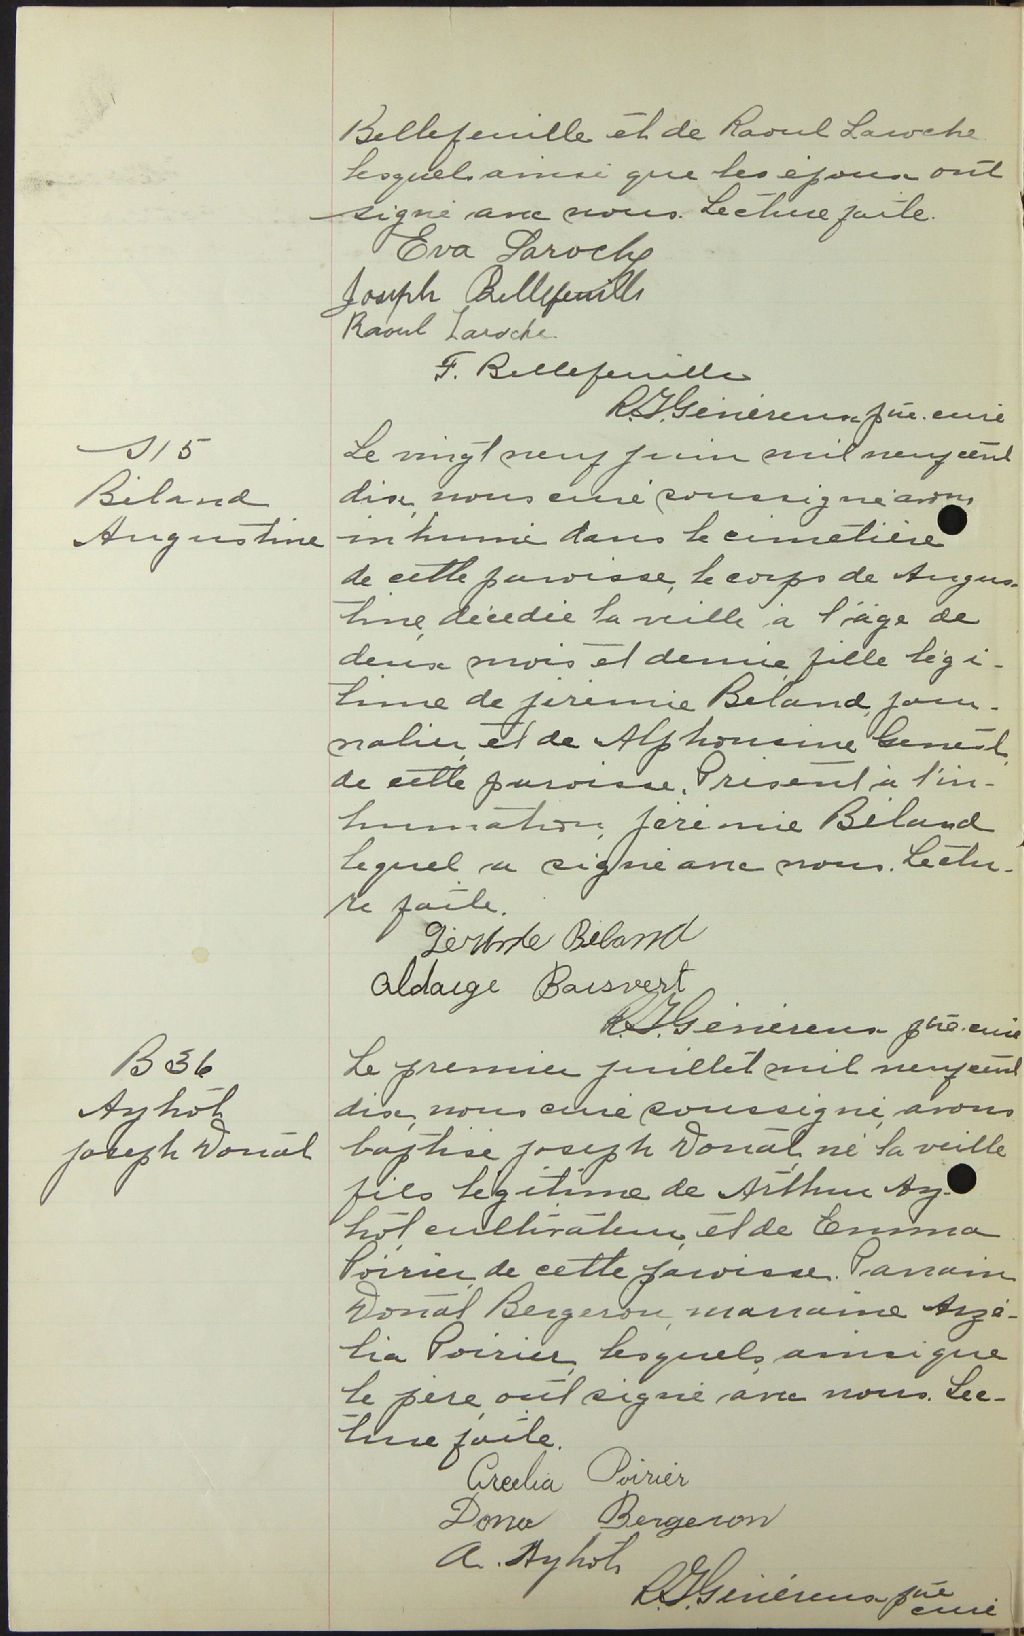 Bellefeuille et de Raoul Laroche
lesquels ainsi que les époux ont
signé avec nous. Lecture faite.
Eva Laroche
Joseph Bellefeuille
Raoul Laroche
F. Bellefeuille
R.J. Généreux ptre. curé
S15
Béland
Augustine
Le vingt neuf juin mil neuf cent
dix, nous curé soussigné avons
inhumé dans le cimetière
de cette paroisse, le corps de Augus-
tine, décédée la veille à l'âge de
deux mois et demie, fille légi-
time de Jérémie Béland, jour-
nalier, et de Alphonsine Genest,
de cette paroisse. Présent à l'in-
humation, Jérémie Béland
lequel a signé avec nous. Lectu-
re faite.
Béland
Aldaige Boisvert
R.J. Généreux ptre. curé
B 36
Ayhot
Joseph Donat
Le premier juillet mil neuf cent
dix, nous curé soussigné, avons
baptisé Joseph Donat, né la veille
fils légitime de Arthur Ay-
hot cultivateur, et de Emma
Poirier, de cette paroisse. Parrain
Donat Bergeron, marraine Azé-
lia Poirier, lesquels, ainsi que
le père, ont signé avec nous. Lec-
ture faite.
Poirier
Dona Bergeron
A. Ayhot
R.J. Généreux ptre
curé